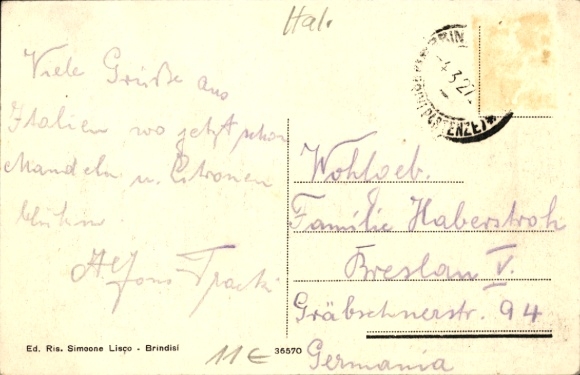 Ital.
Viele Grüße aus
Italien wo jetzt schon
Mandeln u. Citronen
blühen
Alfons
4.3.27
Wohlgeb.
Familie Haberstroh
Breslau V.
Gräbschnerstr. 94
Germania
Ed. Ris. Simeone Lisço - Brindisi
11€
36570